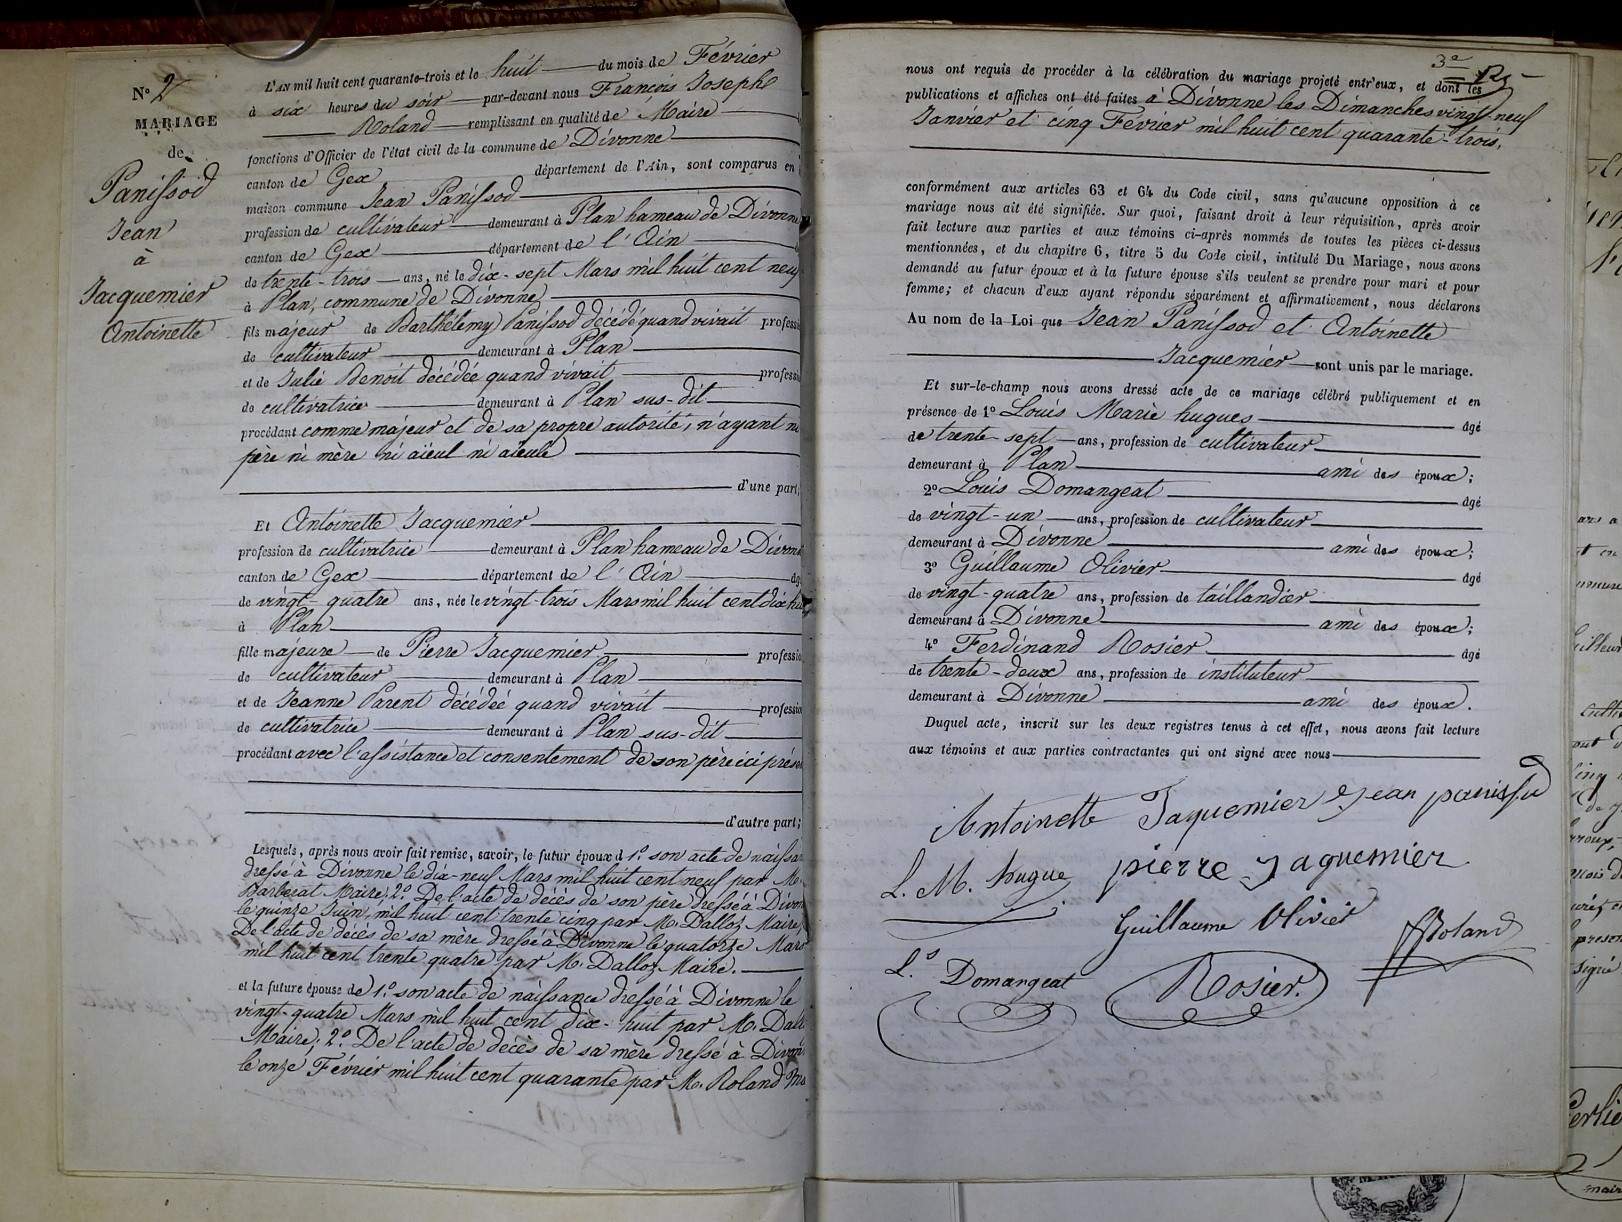 N° 2
MARIAGE
de
Panissod
Jean
à
Jacquemier
Antoinette
L'AN mil huit cent quarante-trois et le huit du mois de Février
à six heures du soir par-devant nous François Joseph
Roland remplissant en qualité de Maire
fonctions d'Officier de l'état civil de la commune de Divonne
canton de Gex département de l'Ain, sont comparus en
maison commune Jean Panissod
profession de cultivateur demeurant à Plan hameau de Divonne
canton de Gex département de l'Ain
de trente-trois ans, né le dix-sept Mars mil huit cent neuf
à Plan, commune de Divonne
fils majeur de Barthélemy Panissod décédé quand vivait professi
de cultivateur demeurant à Plan
et de Julie Benoit décédée quand vivait professi
de cultivatrice demeurant à Plan sus-dit
procédant comme majeur et de sa propre autorité, n'ayant ni
père ni mère ni aïeul ni aïeule
d'une part;
Et Antoinette Jacquemier
profession de cultivatrice demeurant à Plan hameau de Divonn
canton de Gex département de l'Ain âg
de vingt-quatre ans, née le vingt-trois Mars mil huit cent dix hu
à Plan
fille majeure de Pierre Jacquemier professio
de cultivateur demeurant à Plan
et de Jeanne Parent décédée quand vivait professio
de cultivatrice demeurant à Plan sus-dit
procédant avec l'assistance et consentement de son père ici prése
d'autre part;
Lesquels, après nous avoir fait remise, savoir, le futur époux d 1.° son acte de naissan
dressé à Divonne le dix-neuf Mars mil huit cent neuf par M.
Barberat Maire; 2.° De l'acte de décès de son père dressé à Divon
le quinze Juin, mil huit cent trente cinq par M. Dalloz Maire,
De l'acte de décès de sa mère dressé à Divonne le quatorze Mars
mil huit cent trente quatre par M. Dalloz Maire.
et la future épouse de 1.° son acte de naissance dressé à Divonne le
vingt-quatre Mars mil huit cent dix-huit par M. Dall
Maire; 2.° De l'acte de décès de sa mère dressé à Divon
le onze Février mil huit cent quarante par M. Roland Ma
3e
nous ont requis de procéder à la célébration du mariage projeté entr'eux, et dont les
publications et affiches ont été faites à Divonne les Dimanches vingt-neuf
Janvier et cinq Février mil huit cent quarante-trois,
conformément aux articles 63 et 64 du Code civil, sans qu'aucune opposition à ce
mariage nous ait été signifiée. Sur quoi, faisant droit à leur réquisition, après avoir
fait lecture aux parties et aux témoins ci-après nommés de toutes les pièces ci-dessus
mentionnées, et du chapitre 6, titre 5 du Code civil, intitulé Du Mariage, nous avons
demandé au futur époux et à la future épouse s'ils veulent se prendre pour mari et pour
femme; et chacun d'eux ayant répondu séparément et affirmativement, nous déclarons
Au nom de la Loi que Jean Panissod et Antoinette
Jacquemier sont unis par le mariage.
Et sur-le-champ nous avons dressé acte de ce mariage célébré publiquement et en
présence de 1° Louis Marie hugues âgé
de trente-sept ans, profession de cultivateur
demeurant à Plan ami des époux;
2° Louis Domangeat âgé
de vingt-un ans, profession de cultivateur
demeurant à Divonne ami des époux;
3° Guillaume Olivier âgé
de vingt-quatre ans, profession de taillandier
demeurant à Divonne ami des époux;
4° Ferdinand Rosier âgé
de trente-deux ans, profession de instituteur
demeurant à Divonne ami des époux.
Duquel acte, inscrit sur les deux registres tenus à cet effet, nous avons fait lecture
aux témoins et aux parties contractantes qui ont signé avec nous
Antoinette Jaquemier Jean panissod
L. M. hugue pierre Jaquemier
Guillaume Olivier
Roland
L.s Domangeat
Rosier.